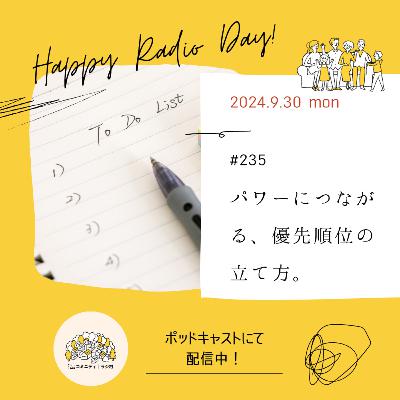 Happy Radio Day!
2024.9.30 mon
To Do List
#235
1)
2)
3)
4)
パワーにつなが
る、優先順位の
立て方。
ポッドキャストにて
配信中！